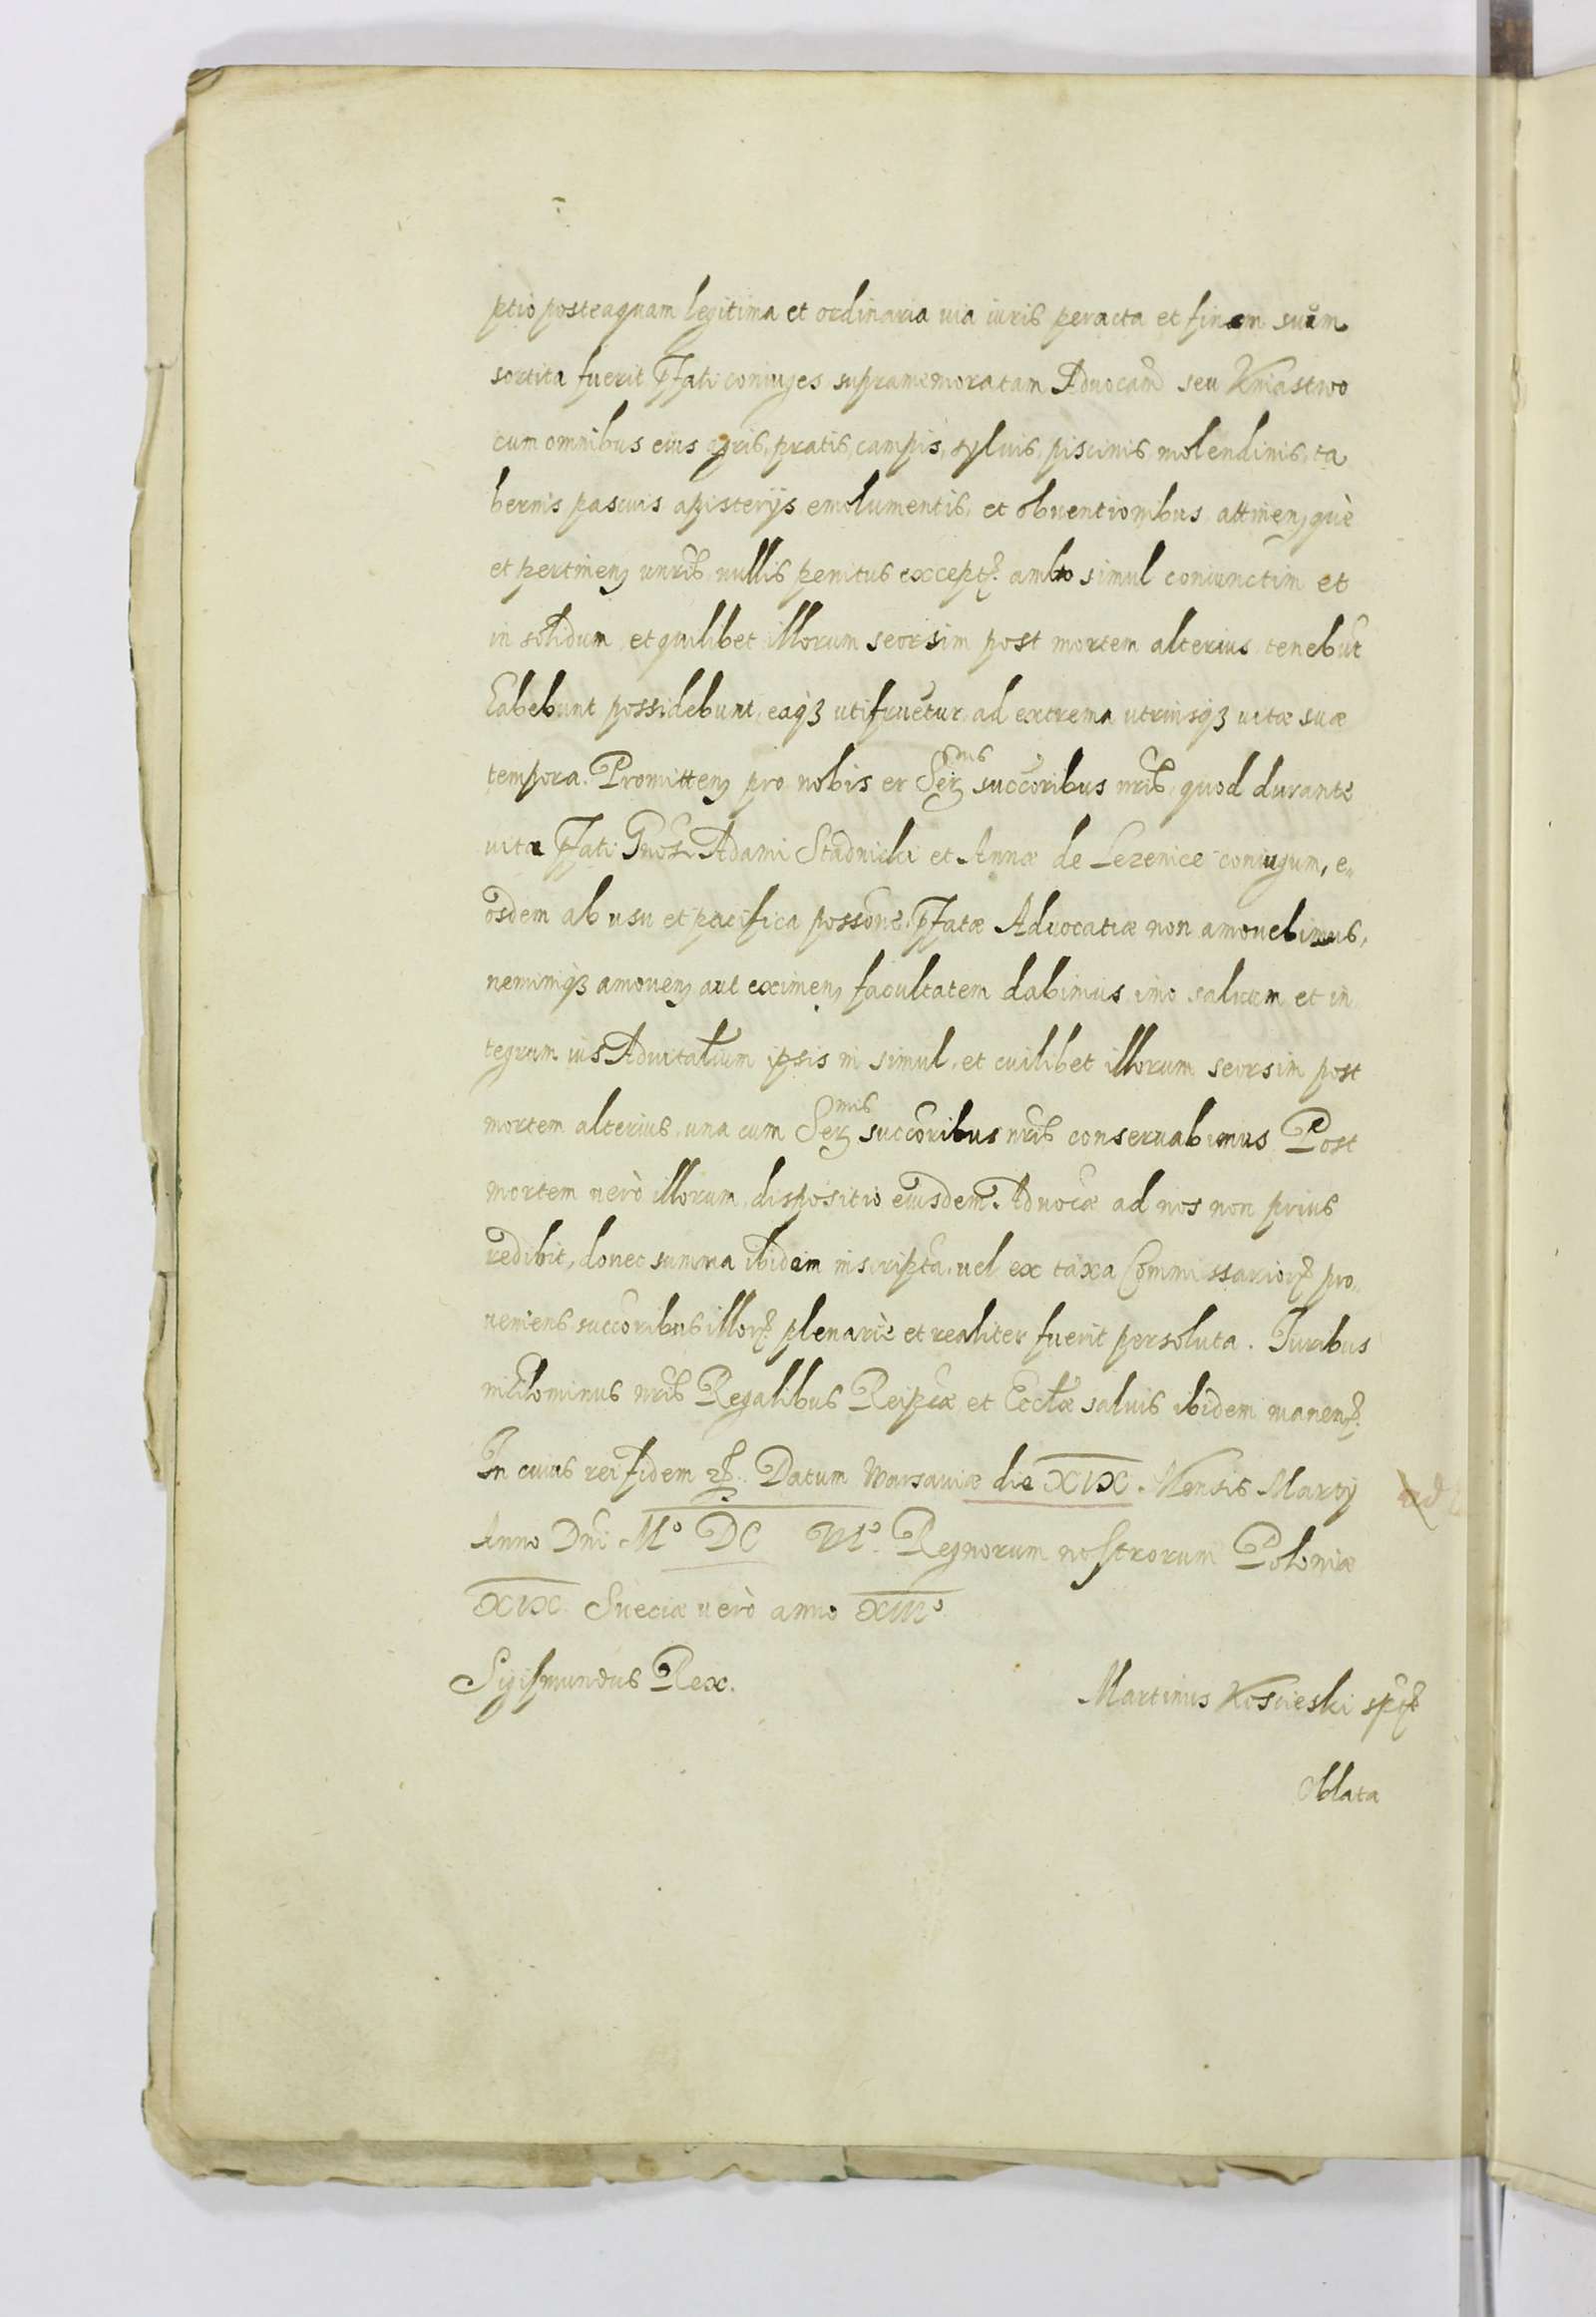 ptio posteaquam legitima et ordinaria uia iuris peracta et finem suum
sortita fuerit Pfati coniuges supramemoratam Aduocam seu Kniastwo
cum omnibus eius agris, pratis, campis, syluis, piscinis, molendinis, ta
bernis pascuis apisterijs emolumentis, et obuentionibus attinen què
et pertinen unris nullis penitus except. ambo simul coniunctim et
in solidum et quilibet illorum seorsim post mortem alterius tenebut
habebunt possidebunt, eaqȝ utifruetur, ad extrema utriusqȝ uitæ suæ
tempora. Promitten pro nobis et Ser mis succoribus nris, quod durante
uita Pfati Gnosi Adami Stadnicki et Annæ de Lezenice coniugum, e„
osdem ab usu et pacifica possone, Pfatæ Aduocatiæ non amouebimus,
neminiqȝ amouen aut eximen facultatem dabimus imo saluum et in
tegrum ius Aduitalium ipsis in simul, et cuilibet illorum seorsim post
mortem alterius, una cum Ser mis succoribus nris conseruabimus Post
mortem uerò illorum, dispositio eiusdem Aduocæ ad nos non prius
redibit, donec summa ibidem inscripta, uel ex taxa Commissarior pro„
ueniens succoribus illor plenariè et realiter fuerit persoluta. Iuribus
nihilominus nris Regalibus Reipcæ et Ecclæ saluis ibidem manen.
In cuius rei fidem Datum Warsauiæ die XIX. Mensis Martij
Anno Dni Mº DC VIº. Regnorum nostrorum Poloniæ
XIX Sueciæ uerò anno XIIIº
Sigismundus Rex.
Martinus Koscieski
Oblata